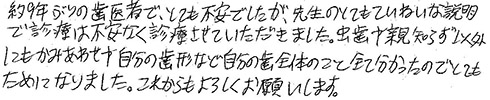 約9年ぶりの歯医者で、とても不安でしたが、先生のとてもていねいな説明
で診療は不安なく診療させていただきました。虫歯や親知らず以外
にもかみあわせや自分の歯形など自分の歯全体のこと全て分かったのでとても
ためになりました。これからもよろしくお願いします。